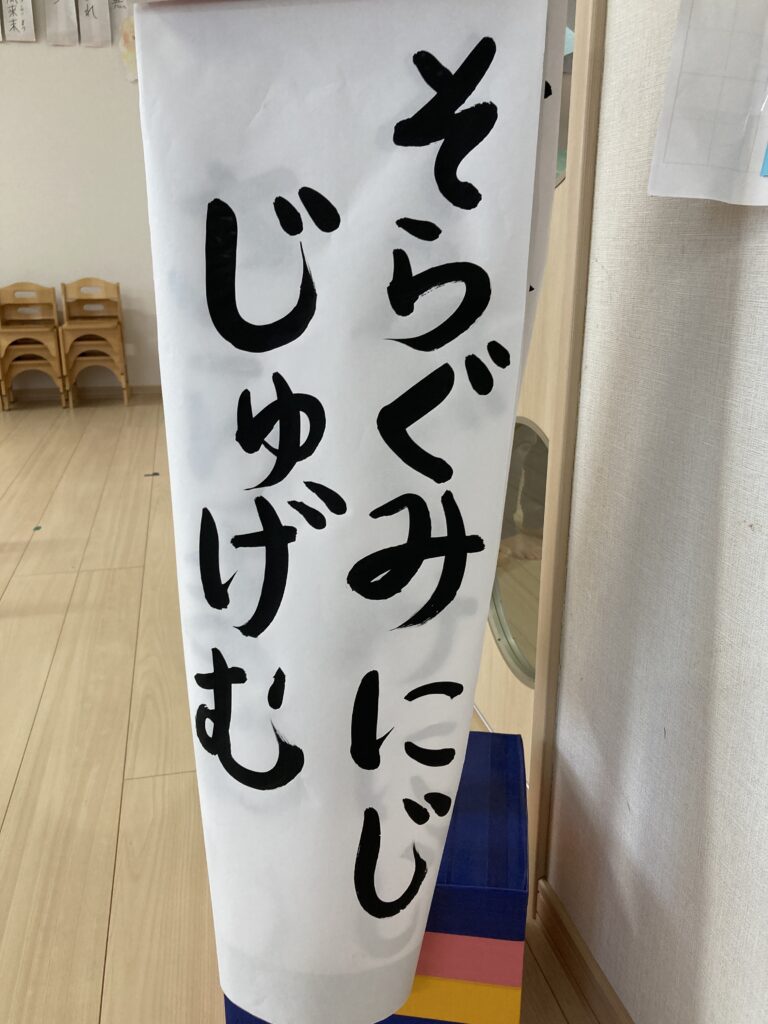 そらぐみ にじ
じゅげむ